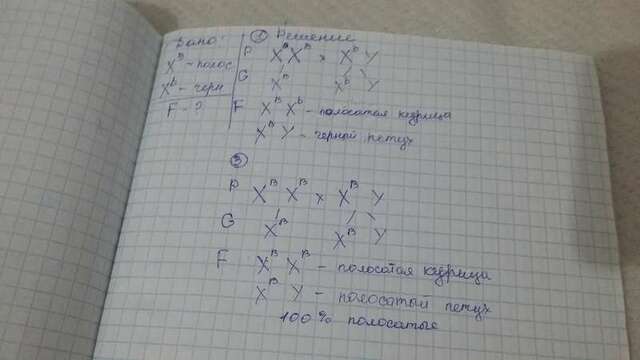 Дано:
X^B - полос
X^b - черн
F - ?
① Решение
P X^B X^B x X^b Y
G X^B X^b Y
F X^B X^b - полосатая курица
X^B Y - черный петух
③
P X^B X^B x X^B Y
G X^B X^B Y
F X^B X^B - полосатая курица
X^B Y - полосатый петух
100% полосатые